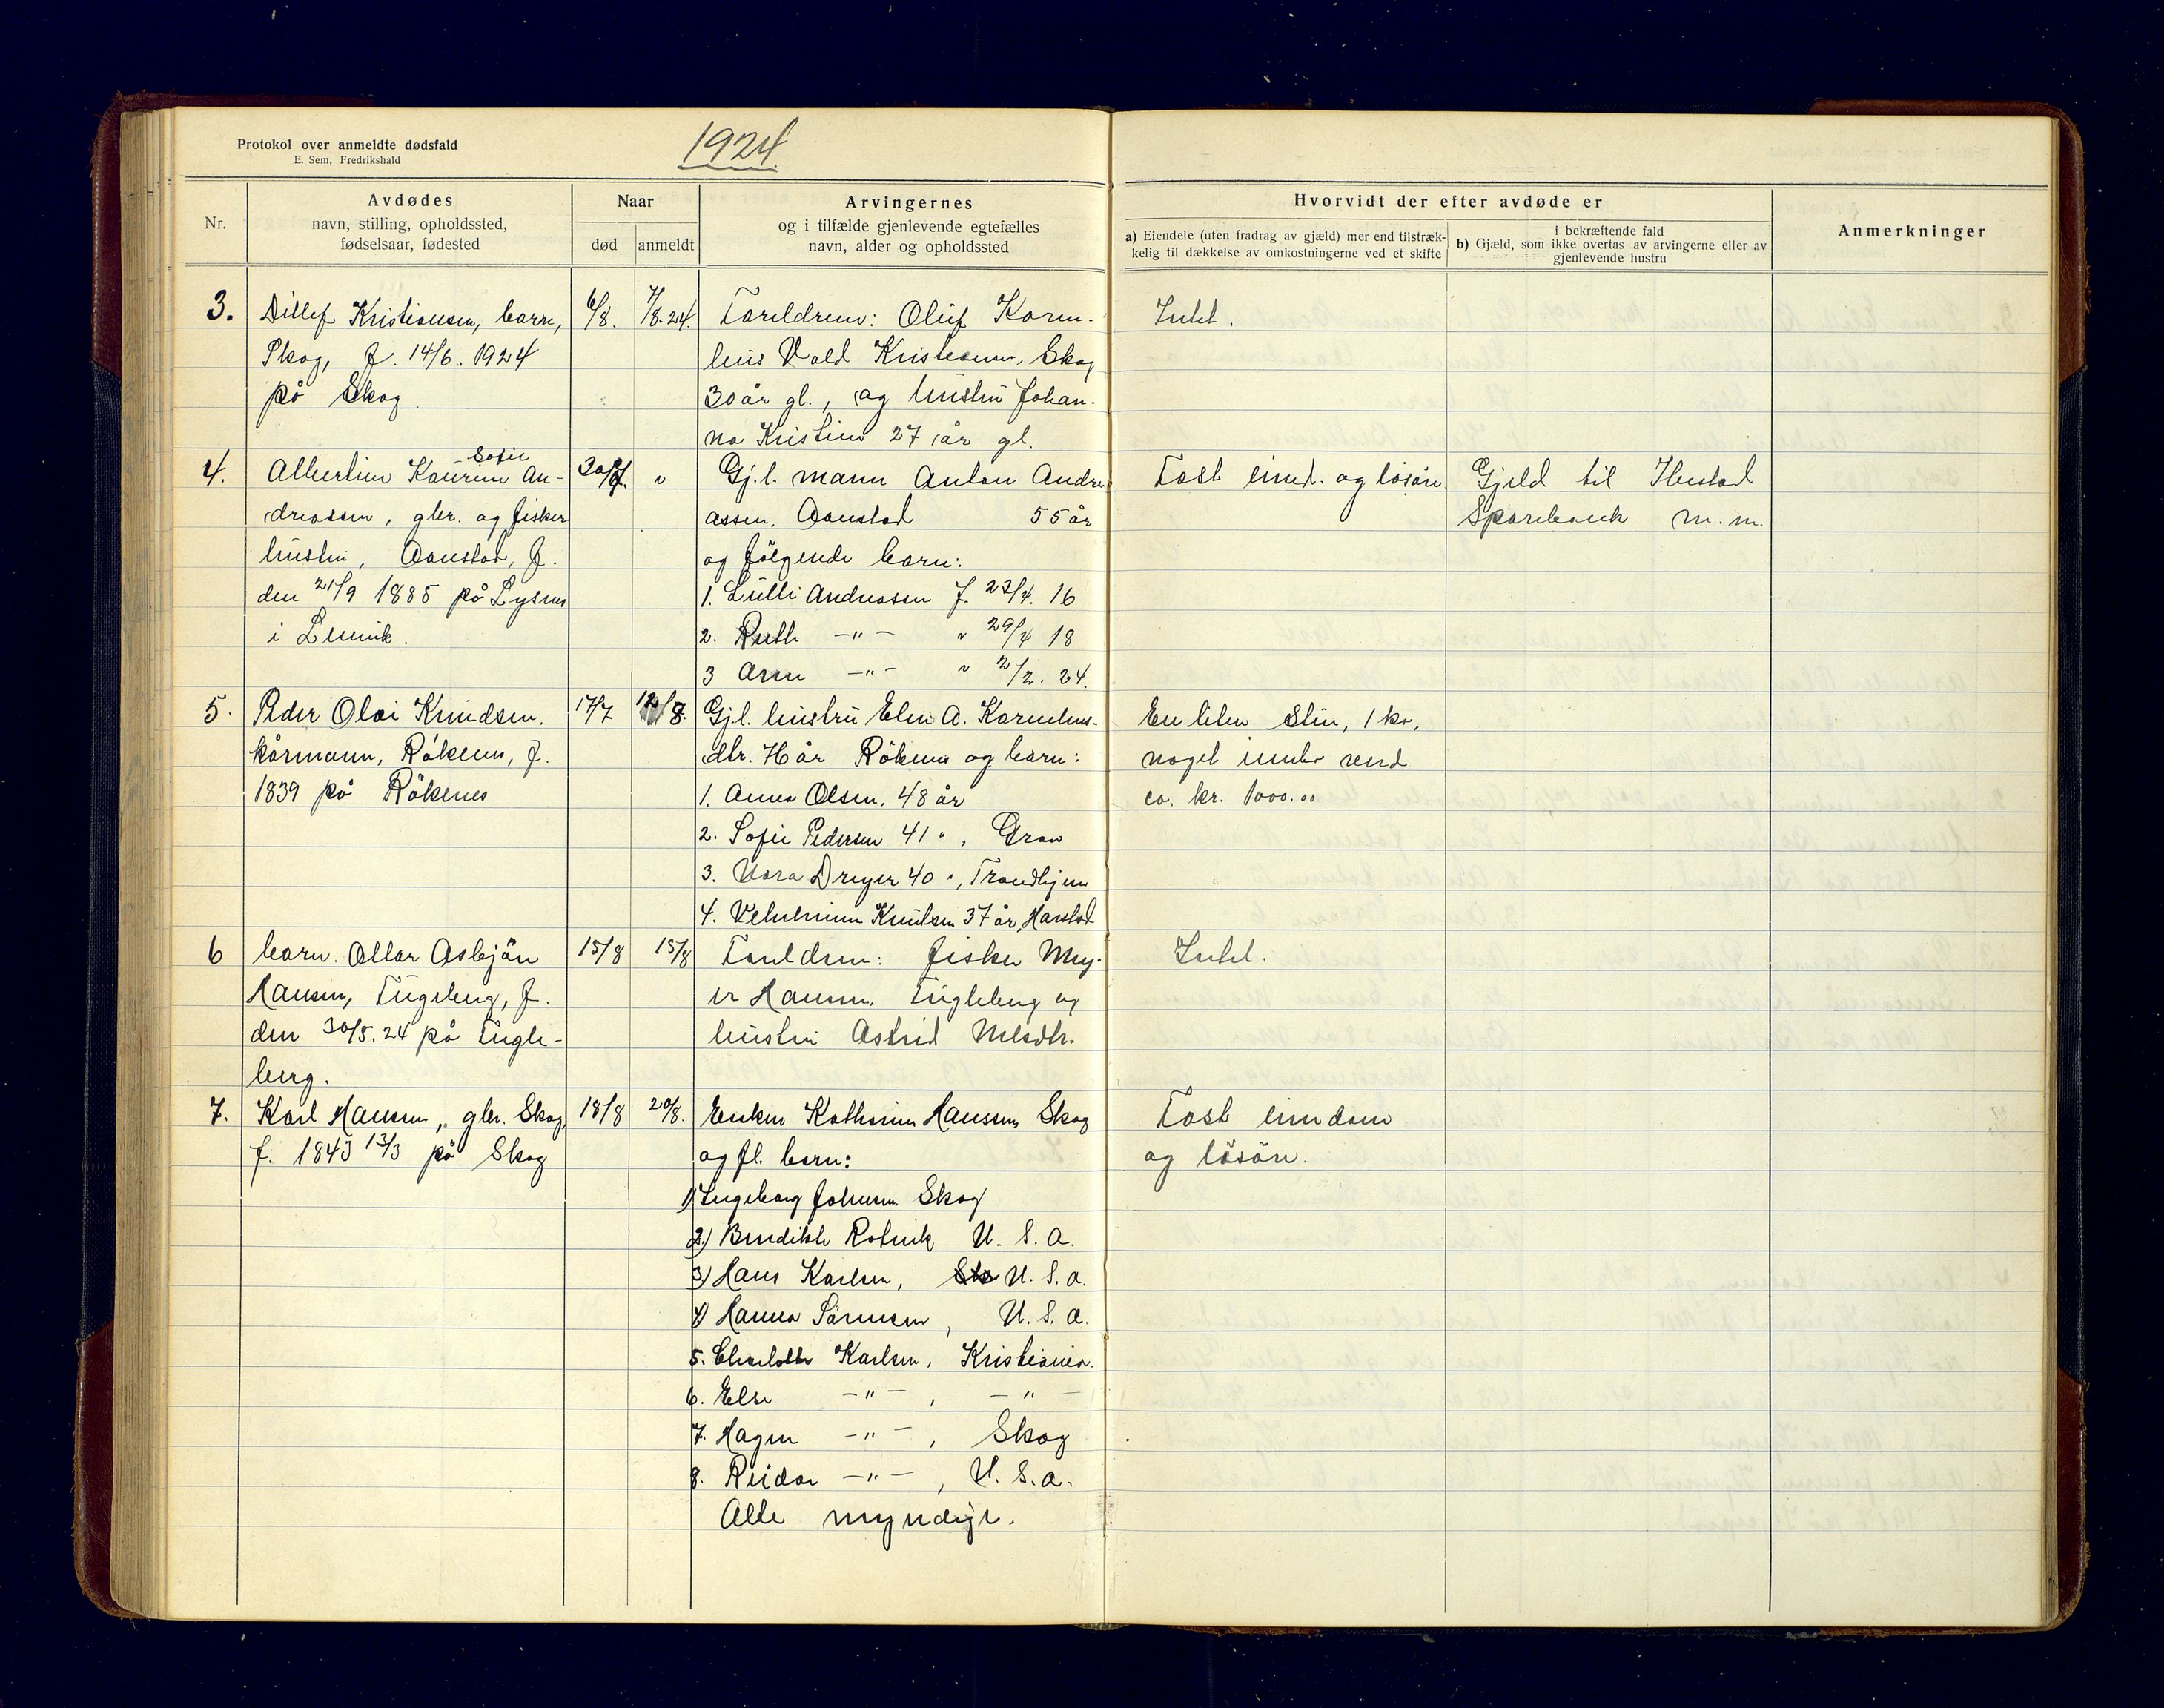 Protokol over anmeldte dødsfald
E. Sem, Fredrikshald
1924.
Nr.
Avdødes
navn, stilling, opholdssted,
fødselsaar, fødested
Naar
død
anmeldt
Arvingernes
og i tilfælde gjenlevende egtefælles
navn, alder og opholdssted
Hvorvidt der efter avdøde er
a) Eiendele (uten fradrag av gjæld) mer end tilstræk-
kelig til dækkelse av omkostningerne ved et skifte
i bekræftende fald
b) Gjæld, som ikke overtas av arvingerne eller av
gjenlevende hustru
Anmerkninger
3.
Dillef Kristiansen, barn,
Skog, f. 14/6. 1924
på Skog
6/8.
7/8.24.
Foreldrene: Oluf Korne-
lius Vold Kristiansen, Skog
30 år gl., og hustru Johan-
na Kristine 27 år gl.
Intet.
4.
Sofie
Albertine Kaurine An-
dreassen, gbr. og fisker
hustru, Aanstad, f.
den 21/9 1885 på Lysnes
i Lenvik.
"
Gj.l. mann Anton Andre
assen, Aanstad 55 år
og følgende barn:
1. Lulli Andreassen f. 23/4. 16
2. Ruth -"- " 29/4 18
3 Arne -"- " 2/2. 24.
Fast eiend. og løsøre
Gjeld til Ibestad
Sparebank m. m.
5.
Peder Olai Knudsen.
kårmann, Røkenes, f.
1839 på Røkenes
17/7
12/8
Gj.l. hustru Elen A. Kornelius-
dtr. 76 år Røkenes og barn:
1. Anna Olsen, 48 år
2. Sofie Pedersen 41 ", Grav
3. Nora Dreyer 40 ", Trondhjem
4. Knutsen 37 år, Harstad
En liten stue, 1 ko,
noget innbo verd
ca. kr. 1000.00
6
barn. Ottar Asbjøn
Hansen, Fugleberg, f.
den 30/5. 24 på Fugle-
berg.
15/8
15/8
Foreldrene: fisker Mey-
er Hansen, Fugleberg og
hustru Astrid Nilsdtr.
Intet.
7.
Karl Hansen, gbr. Skog,
f. 1843 13/3 på Skog
18/8
20/8.
Enken Katharina Hanssen, Skog
og fl. barn:
1) Ingeborg Johnsen Skog
2.) Bendikte Rotvik U. S. A.
3) Hans Karlsen, U. S. A.
4) Hanna Sørensen, U. S. A.
5. Charlotte Karlsen, Kristiania.
6. Else -"-, -"-
7. Hagen -"-, Skog
8. Reidar -"-, U. S. A.
Alle myndige.
Fast eiendom
og løsøre.